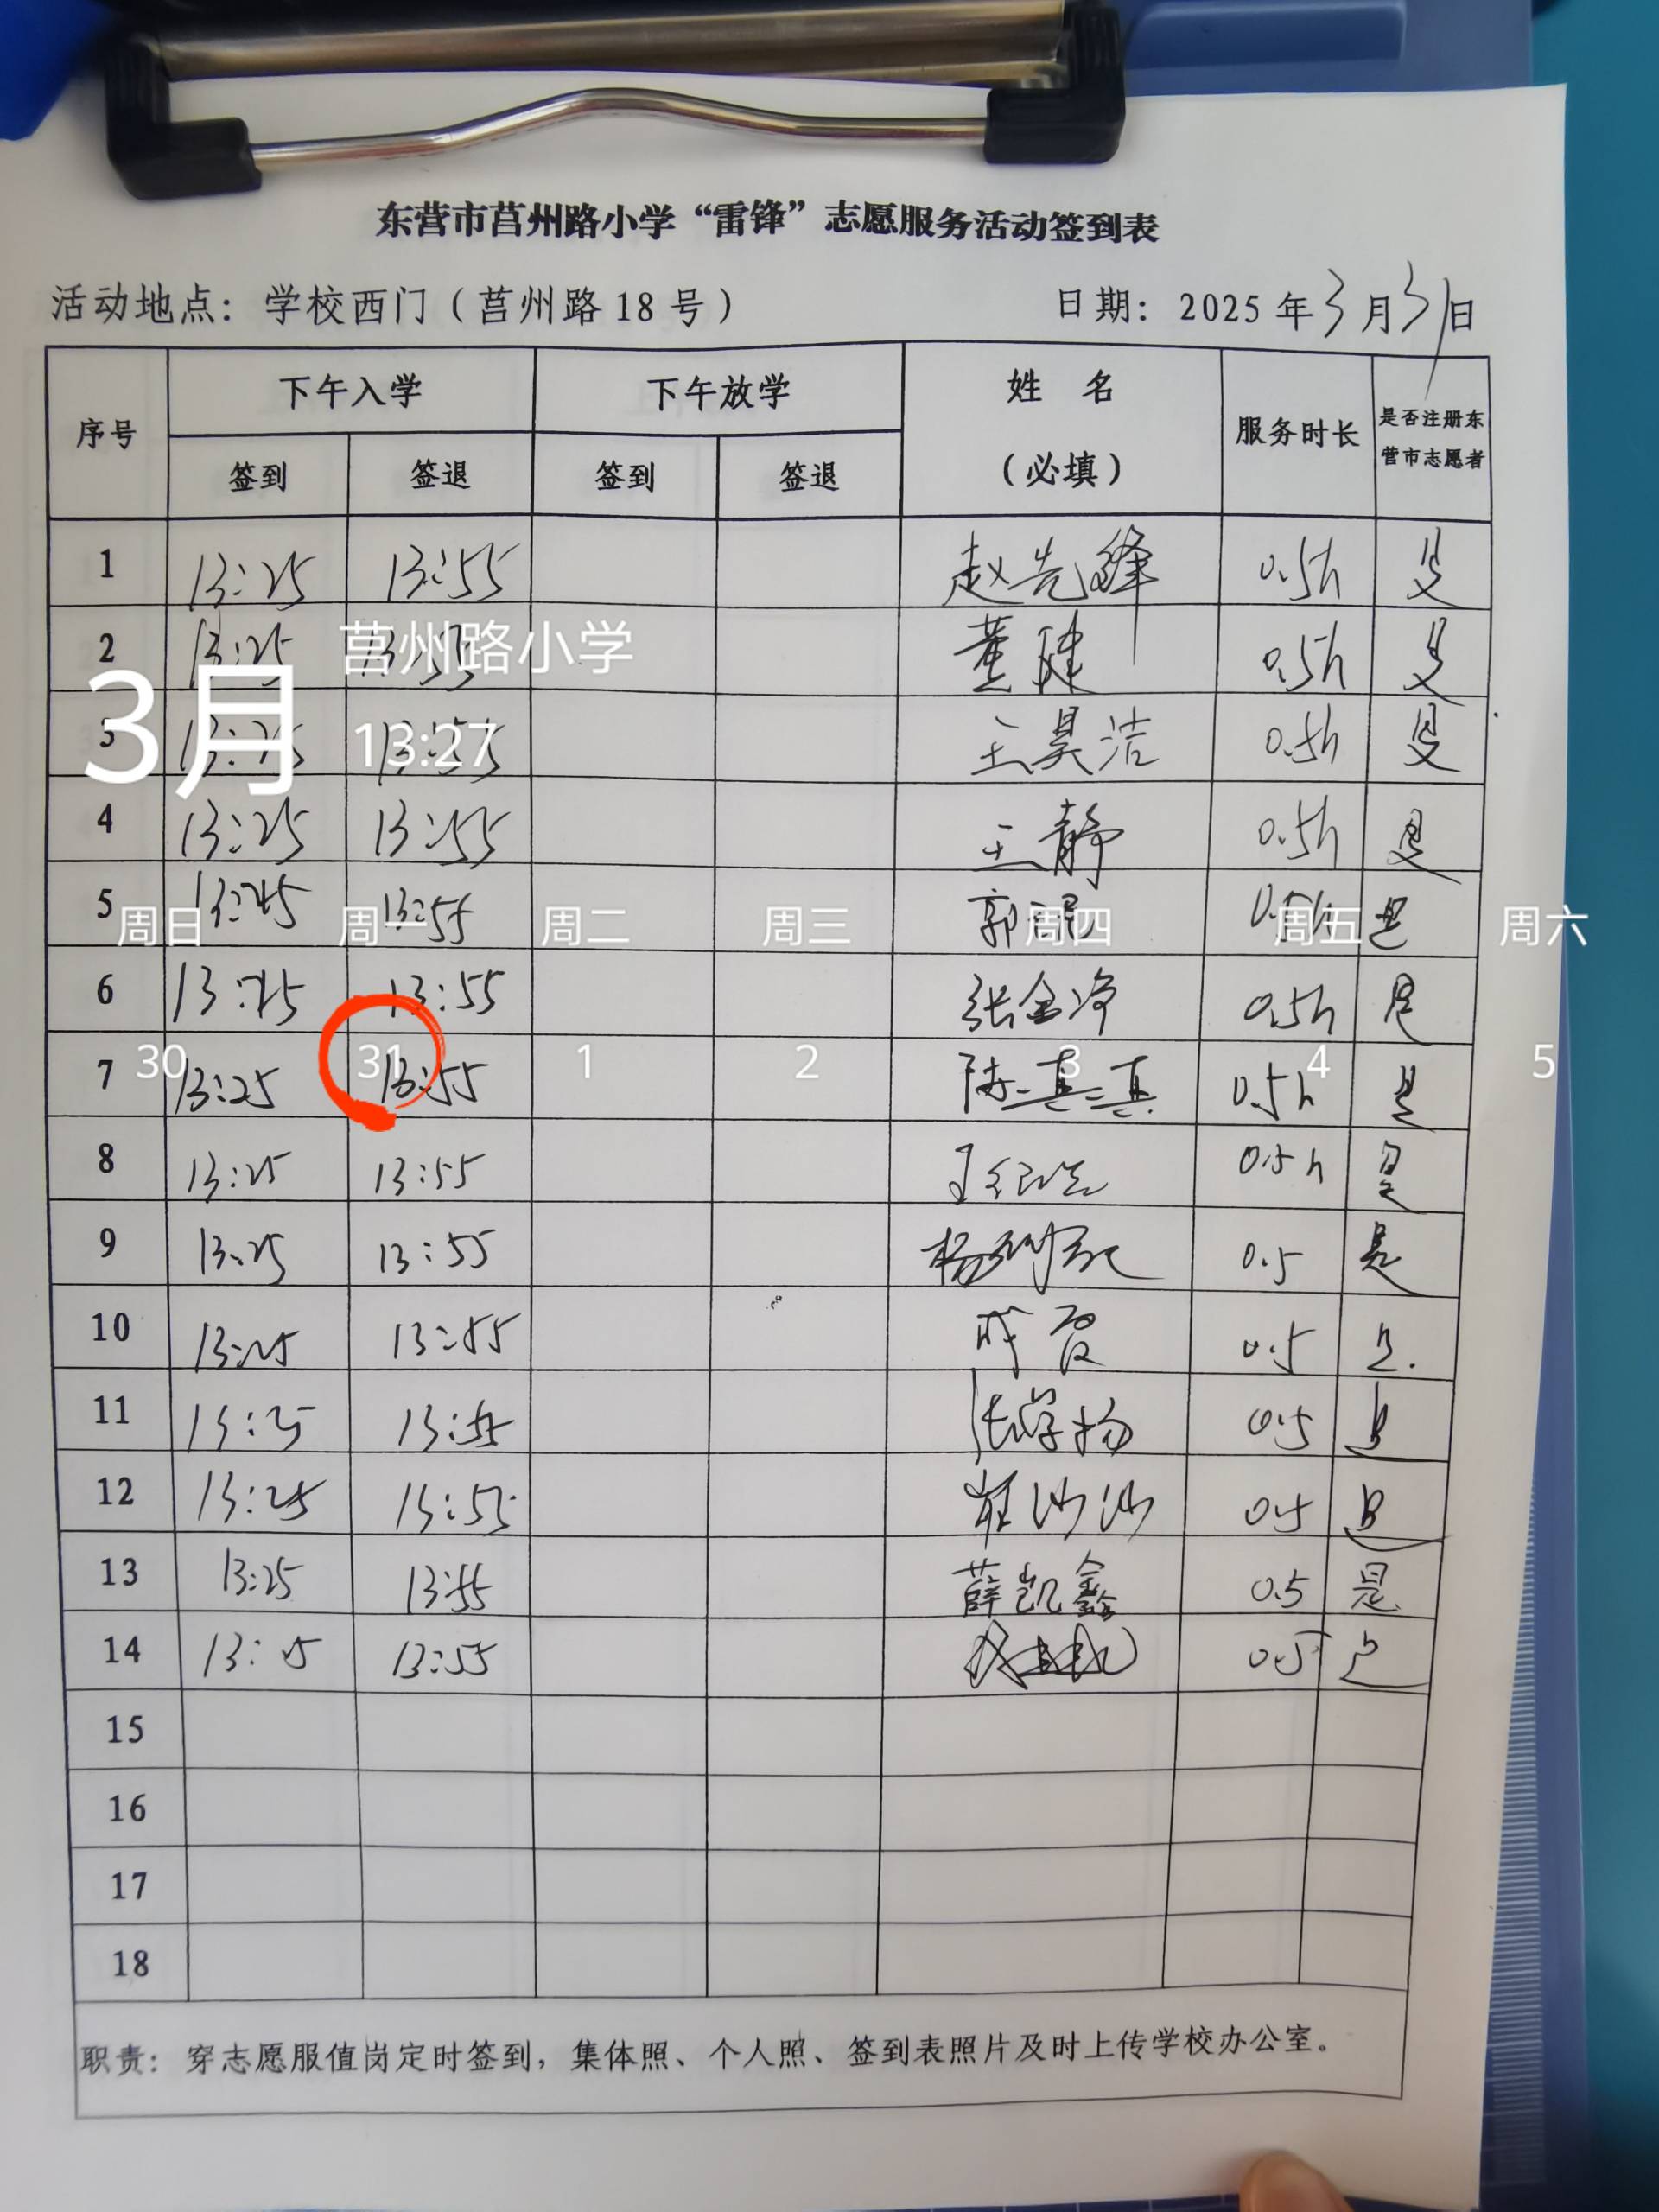 东营市莒州路小学“雷锋”志愿服务活动签到表
活动地点：学校西门（莒州路18号） 日期：2025年3月31日
序号 下午入学 下午放学 姓 名（必填） 服务时长 是否注册东营市志愿者
签到 签退 签到 签退
1 13:25 13:55 赵先锋 0.5h 是
2 13:25 13:55 董建 0.5h 是
莒州路小学
3月
13:27
3 13:25 13:55 王昊洁 0.5h 是
4 13:25 13:55 王静 0.5h 是
5 13:25 13:55 郭 0.5h 是
周日 周一 周二 周三 周四 周五 周六
6 13:25 13:55 张金净 0.5h 是
30 31 1 2 3 4 5
7 13:25 13:55 陈真真 0.5h 是
8 13:25 13:55 0.5h 是
9 13:25 13:55 杨 0.5 是
10 13:25 13:55 霞 0.5 是
11 13:25 13:55 张学杨 0.5 是
12 13:25 13:55 沙沙 0.5 是
13 13:25 13:55 薛凯鑫 0.5 是
14 13:25 13:55 0.5 是
15
16
17
18
职责：穿志愿服值岗定时签到，集体照、个人照、签到表照片及时上传学校办公室。